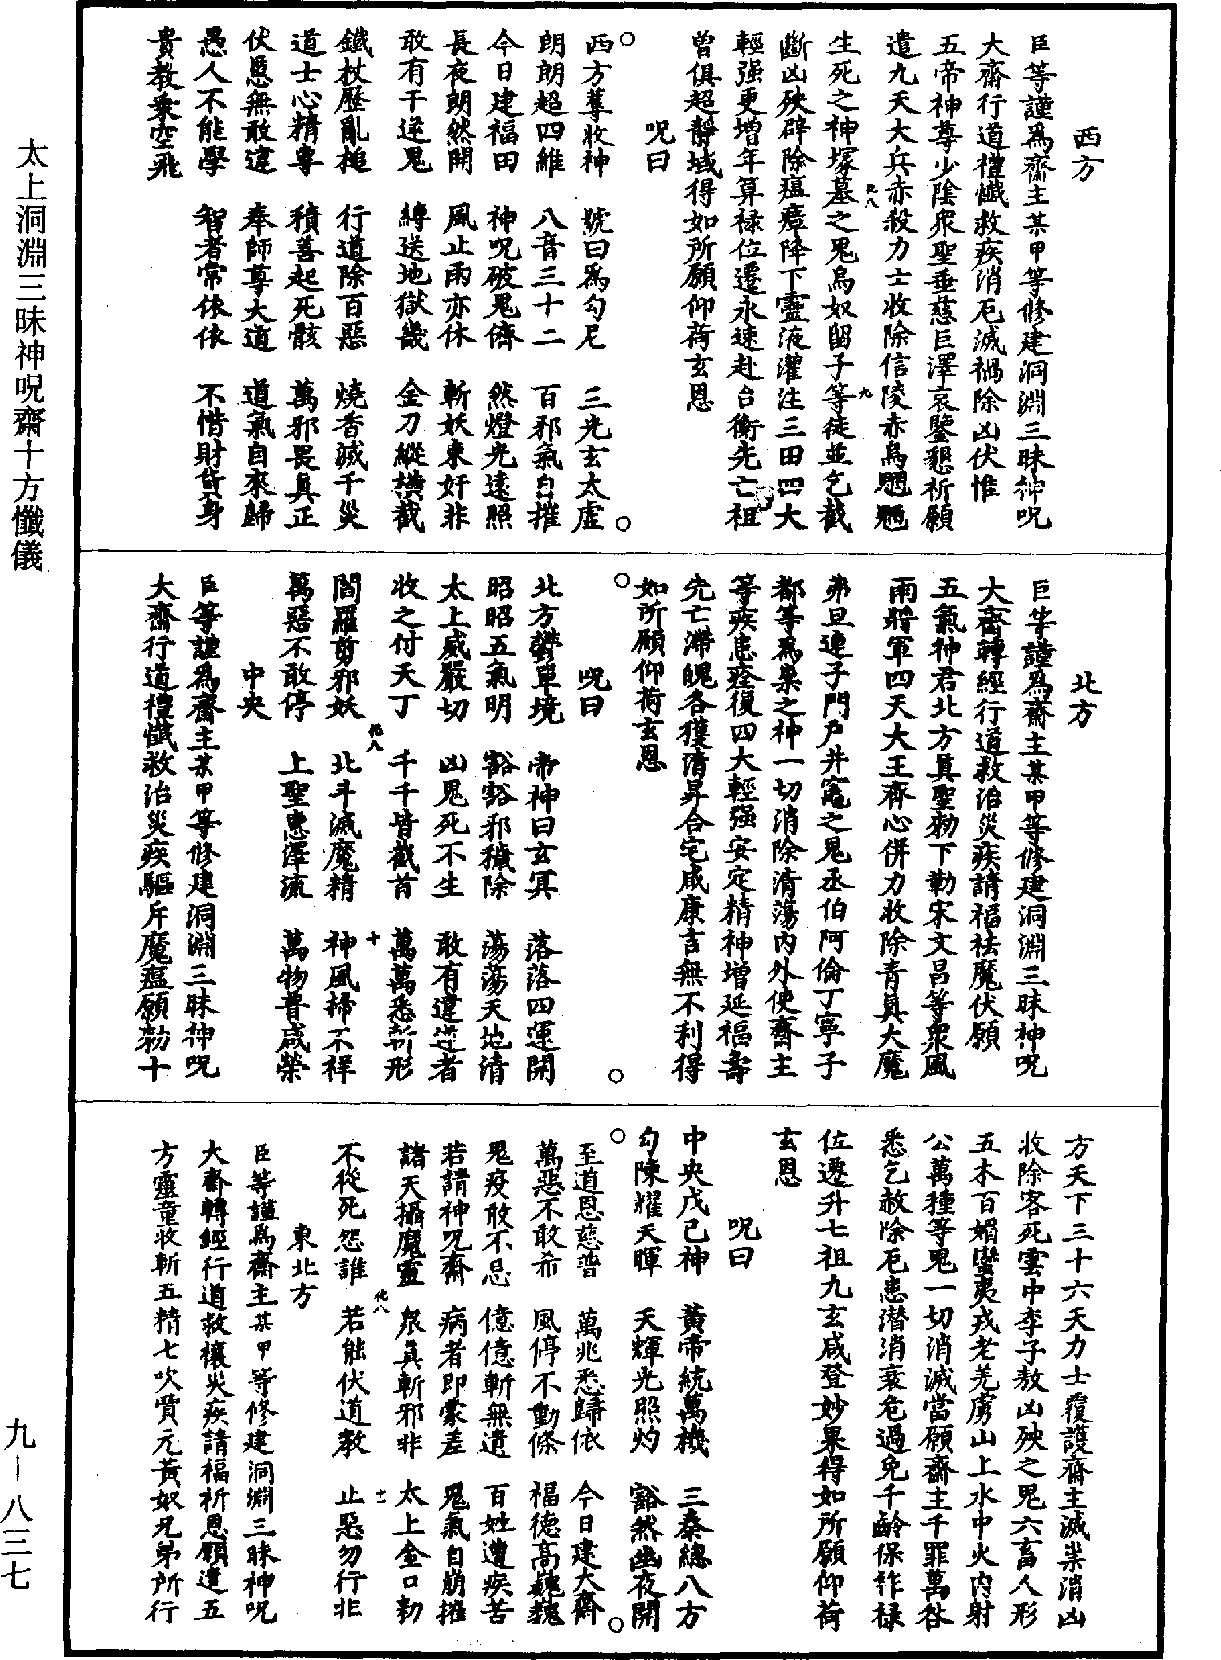 西方
臣等謹爲齋主某甲等修建洞淵三昧神呪
大齋行道禮懺救疾消厄滅禍除凶伏惟
五帝神尊少陰衆聖垂慈巨澤哀鑒懇祈願
遣九天大兵赤殺力士收除信陵赤烏魍魎
生死之神塚墓之鬼烏奴留子等徒並乞截
斷凶殃辟除瘟瘴降下靈液灌注三田四大
輕强更增年算祿位遷永速赴台衡先亡祖
曾俱超靜域得如所願仰荷玄恩
呪曰
西方蓐收神 號曰爲勾尼 三光玄太虛
朗朗超四維 八音三十二 百邪氣自摧
今日建福田 神呪破鬼儕 然燈光遠照
長夜朗然開 風止雨亦休 斬妖東奸非
敢有干逆鬼 縛送地獄畿 金刀縱橫截
鐵杖歷亂槌 行道除百惡 燒香誡千災
道士心精專 積善起死骸 萬邪畏真正
伏愿無敢違 奉師尊大道 道氣自來歸
愚人不能學 智者常依依 不惜財貨身
貴教乘空飛
北方
臣等謹爲齋主某甲等修建洞淵三昧神呪
大齋轉經行道救治災疾請福祛魔伏願
五氣神君北方真聖勑下勒宋文昌等衆風
雨將軍四天大王齊心併力收除青真大魔
弗旦連子門戶井竈之鬼丞伯阿倫丁寧子
都等爲祟之神一切消除清蕩內外使齋主
等疾患痊復四大輕强安定精神增延福壽
先亡滯魄各獲清昇合宅咸康吉無不利得
如所願仰荷玄恩
呪曰
北方鬱單境 帝神曰玄冥 落落四運開
昭昭五氣明 豁豁邪穢除 蕩蕩天地清
太上威嚴切 凶鬼死不生 敢有違逆者
收之付天丁 千千皆截首 萬萬悉斬形
閻羅剪邪妖 北斗滅魔精 神風掃不祥
萬惡不敢停 上聖惠澤流 萬物普咸榮
中央
臣等謹爲齋主某甲等修建洞淵三昧神呪
大齋行道禮懺救治災疾驅斥魔瘟願勑十
方天下三十六天力士覆護齋主滅祟消凶
收除客死雲中李子敖凶殃之鬼六畜人形
五木百媚蠻夷戎老羌虜山上水中火內射
公萬種等鬼一切消滅當願齋主千罪萬咎
悉乞赦除厄患潜消衰危過免千齡保祚祿
位遷升七祖九玄咸登妙果得如所願仰荷
玄恩
呪曰
中央戊己神 黃帝統萬機 三秦總八方
勾陳耀天暉 天輝光照灼 豁然幽夜開
至道恩慈普 萬兆悉歸依 今日建大齋
萬惡不敢希 風停不動條 福德高巍巍
鬼疫敢不忌 億億斬無遺 百姓遭疾苦
若請神呪齋 病者即蒙差 鬼氣自崩摧
諸天攝魔靈 衆真斬邪非 太上金口勑
不從死怨誰 若能伏道教 止惡勿行非
東北方
臣等謹爲齋主某甲等修建洞淵三昧神呪
大齋轉經行道救禳災疾請福祈恩願遣五
方靈童收斬五精七吹貫元黃奴兄弟所行
太上洞淵三昧神呪齋十方懺儀
九－八三七